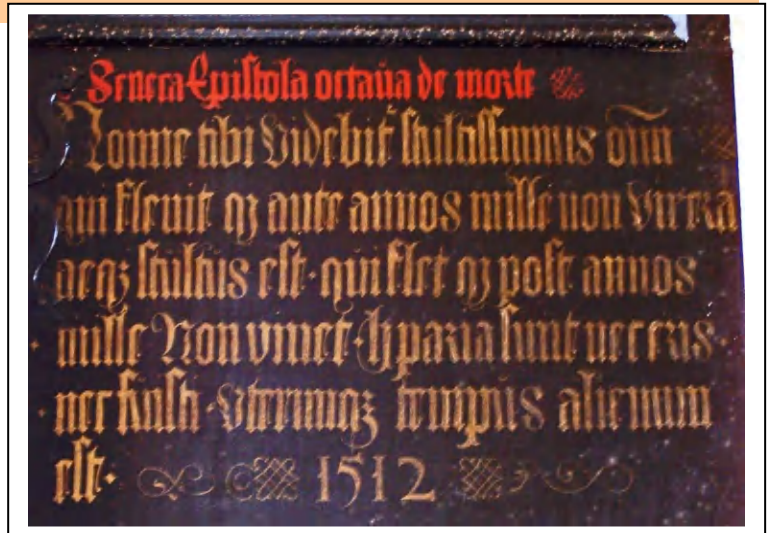 Seneca Epistola octaua de morte
Nonne tibi Videbit᷑ stultissimus om̅
qui fleuit qꝫ ante annos mille non Vixera
aeqꝫ stultus est · qui flet qꝫ post annos
mille Non viuet · h paria sunt nec eras ·
nec fuisti · Vtrumqꝫ tempus alienum
est · 1512